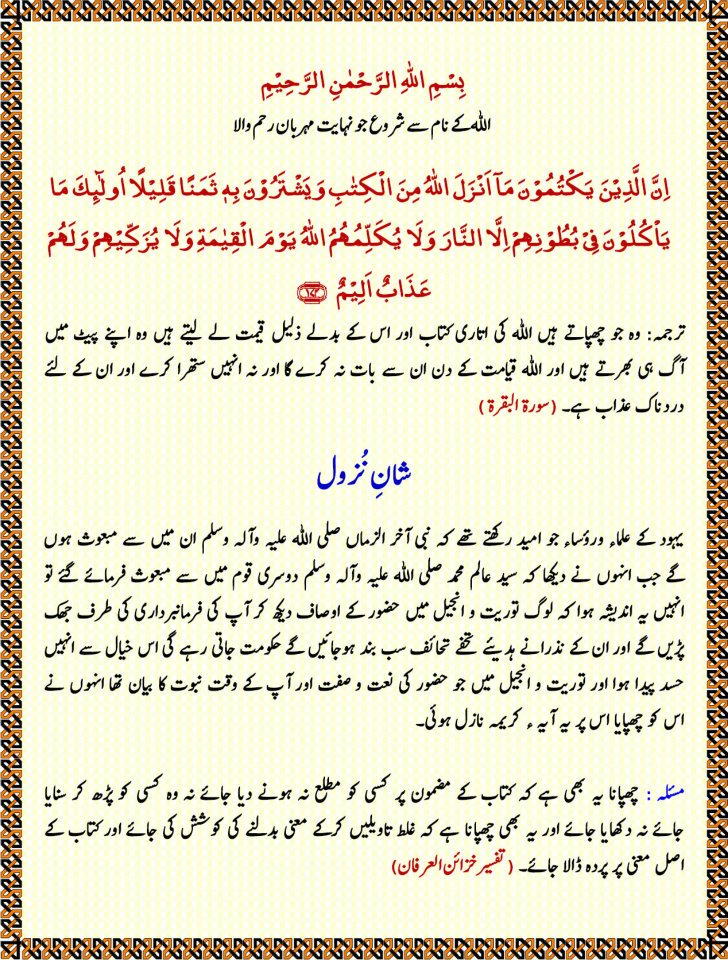 بِسْمِ اللهِ الرَّحْمٰنِ الرَّحِيْمِ
اللہ کے نام سے شروع جو نہایت مہربان رحم والا
اِنَّ الَّذِيْنَ يَكْتُمُوْنَ مَآ اَنْزَلَ اللهُ مِنَ الْكِتٰبِ وَيَشْتَرُوْنَ بِهٖ ثَمَنًا قَلِيْلًا اُولٰٓئِكَ مَا
يَاْكُلُوْنَ فِيْ بُطُوْنِهِمْ اِلَّا النَّارَ وَلَا يُكَلِّمُهُمُ اللهُ يَوْمَ الْقِيٰمَةِ وَلَا يُزَكِّيْهِمْ وَلَهُمْ
عَذَابٌ اَلِيْمٌ ﴿۱۷۴﴾
ترجمہ: وہ جو چھپاتے ہیں اللہ کی اتاری کتاب اور اس کے بدلے ذلیل قیمت لے لیتے ہیں وہ اپنے پیٹ میں
آگ ہی بھرتے ہیں اور اللہ قیامت کے دن ان سے بات نہ کرے گا اور نہ انہیں ستھرا کرے اور ان کے لئے
دردناک عذاب ہے۔ (سورۃ البقرۃ)
شانِ نُزول
یہود کے علماء ورؤساء جو امید رکھتے تھے کہ نبی آخر الزماں صلی اللہ علیہ وآلہ وسلم ان میں سے مبعوث ہوں
گے جب انہوں نے دیکھا کہ سید عالم محمد صلی اللہ علیہ وآلہ وسلم دوسری قوم میں سے مبعوث فرمائے گئے تو
انہیں یہ اندیشہ ہوا کہ لوگ توریت و انجیل میں حضور کے اوصاف دیکھ کر آپ کی فرمانبرداری کی طرف جھک
پڑیں گے اور ان کے نذرانے ہدیئے تحفے تحائف سب بند ہوجائیں گے حکومت جاتی رہے گی اس خیال سے انہیں
حسد پیدا ہوا اور توریت و انجیل میں جو حضور کی نعت و صفت اور آپ کے وقت نبوت کا بیان تھا انہوں نے
اس کو چھپایا اس پر یہ آیہ ء کریمہ نازل ہوئی۔
مسئلہ : چھپانا یہ بھی ہے کہ کتاب کے مضمون پر کسی کو مطلع نہ ہونے دیا جائے نہ وہ کسی کو پڑھ کر سنایا
جائے نہ دکھایا جائے اور یہ بھی چھپانا ہے کہ غلط تاویلیں کرکے معنی بدلنے کی کوشش کی جائے اور کتاب کے
اصل معنی پر پردہ ڈالا جائے۔ (تفسیر خزائن العرفان)